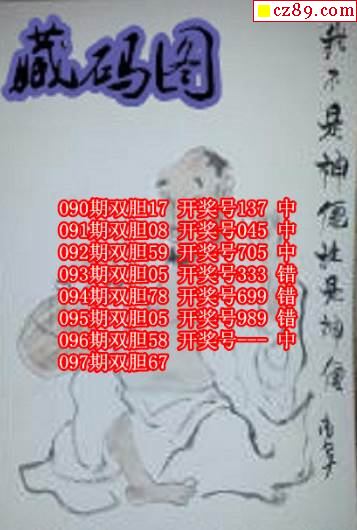 cz89.com
藏码图
我不是神
他是神仙
090期双胆17 开奖号137 中
091期双胆08 开奖号045 中
092期双胆59 开奖号705 中
093期双胆05 开奖号333 错
094期双胆78 开奖号699 错
095期双胆05 开奖号989 错
096期双胆58 开奖号--- 中
097期双胆67